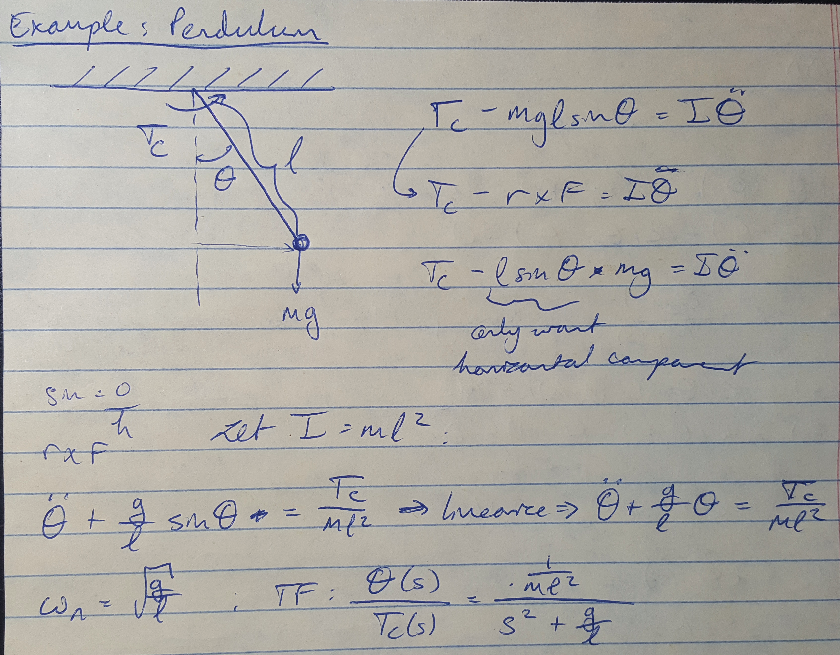 Example: Pendulum
Tc - mglsinθ = Iθ̈
Tc
l
θ
Tc - r x F = Iθ̈
Tc - l sin θ * mg = Iθ̈
mg
only want
horizontal component
sin = o/h
r x F
Let I = ml²:
θ̈ + g/l sinθ = Tc/ml² → linearize ⇒ θ̈ + g/l θ = Tc/ml²
ωn = √(g/l) ; TF: θ(s)/Tc(s) = (1/ml²)/(s² + g/l)